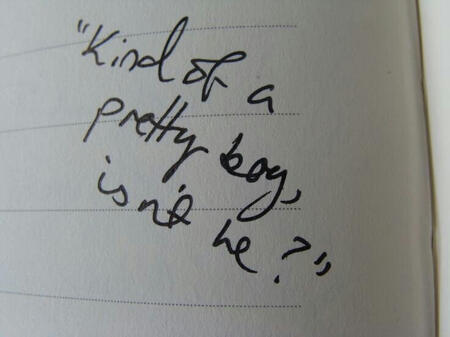 "Kind of a
pretty boy,
isn't he?"